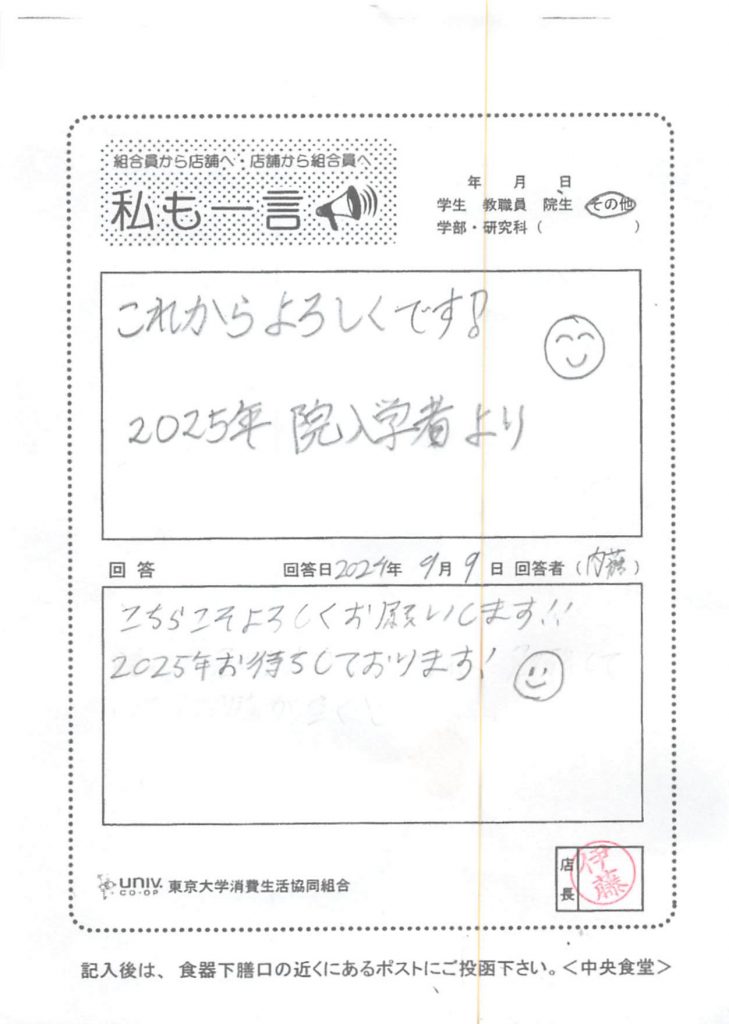 組合員から店舗へ・店舗から組合員へ
私も一言
年 月 日
学生 教職員 院生 その他
学部・研究科( )
これからよろしくです!
2025年 院入学者より
回答 回答日2024年 9月 9日 回答者(内藤)
こちらこそよろしくお願いします!!
2025年お待ちしております!
UNIV. CO-OP 東京大学消費生活協同組合
店長 伊藤
記入後は、食器下膳口の近くにあるポストにご投函下さい。<中央食堂>